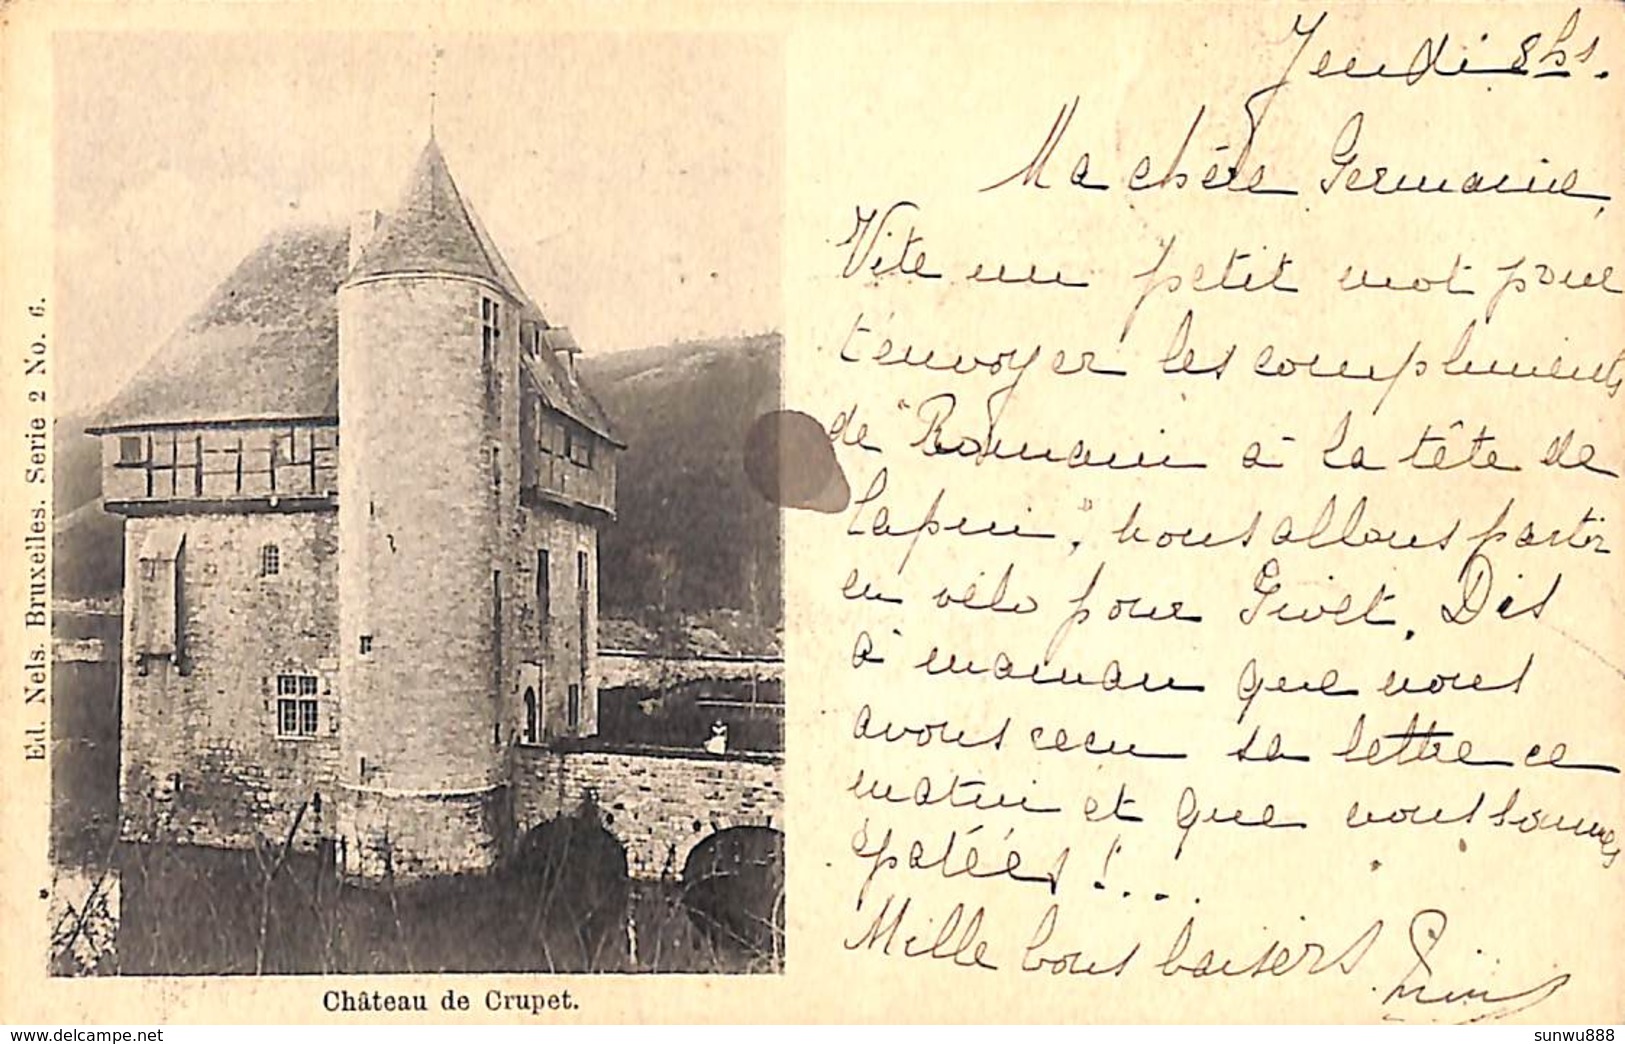 Jeudi 8hs.
Ma chère Germaine,
Vite un petit mot pour
t'envoyer les compliments
de "Romain à la tête de
Lapin", nous allons partir
en vélo pour Givet. Dis
à maman que nous
avons recu sa lettre ce
matin et que nous sommes
épatées !...
Mille bons baisers
Ed. Nels. Bruxelles. Serie 2 No. 6.
Château de Crupet.
delcampe.net
sunwu888